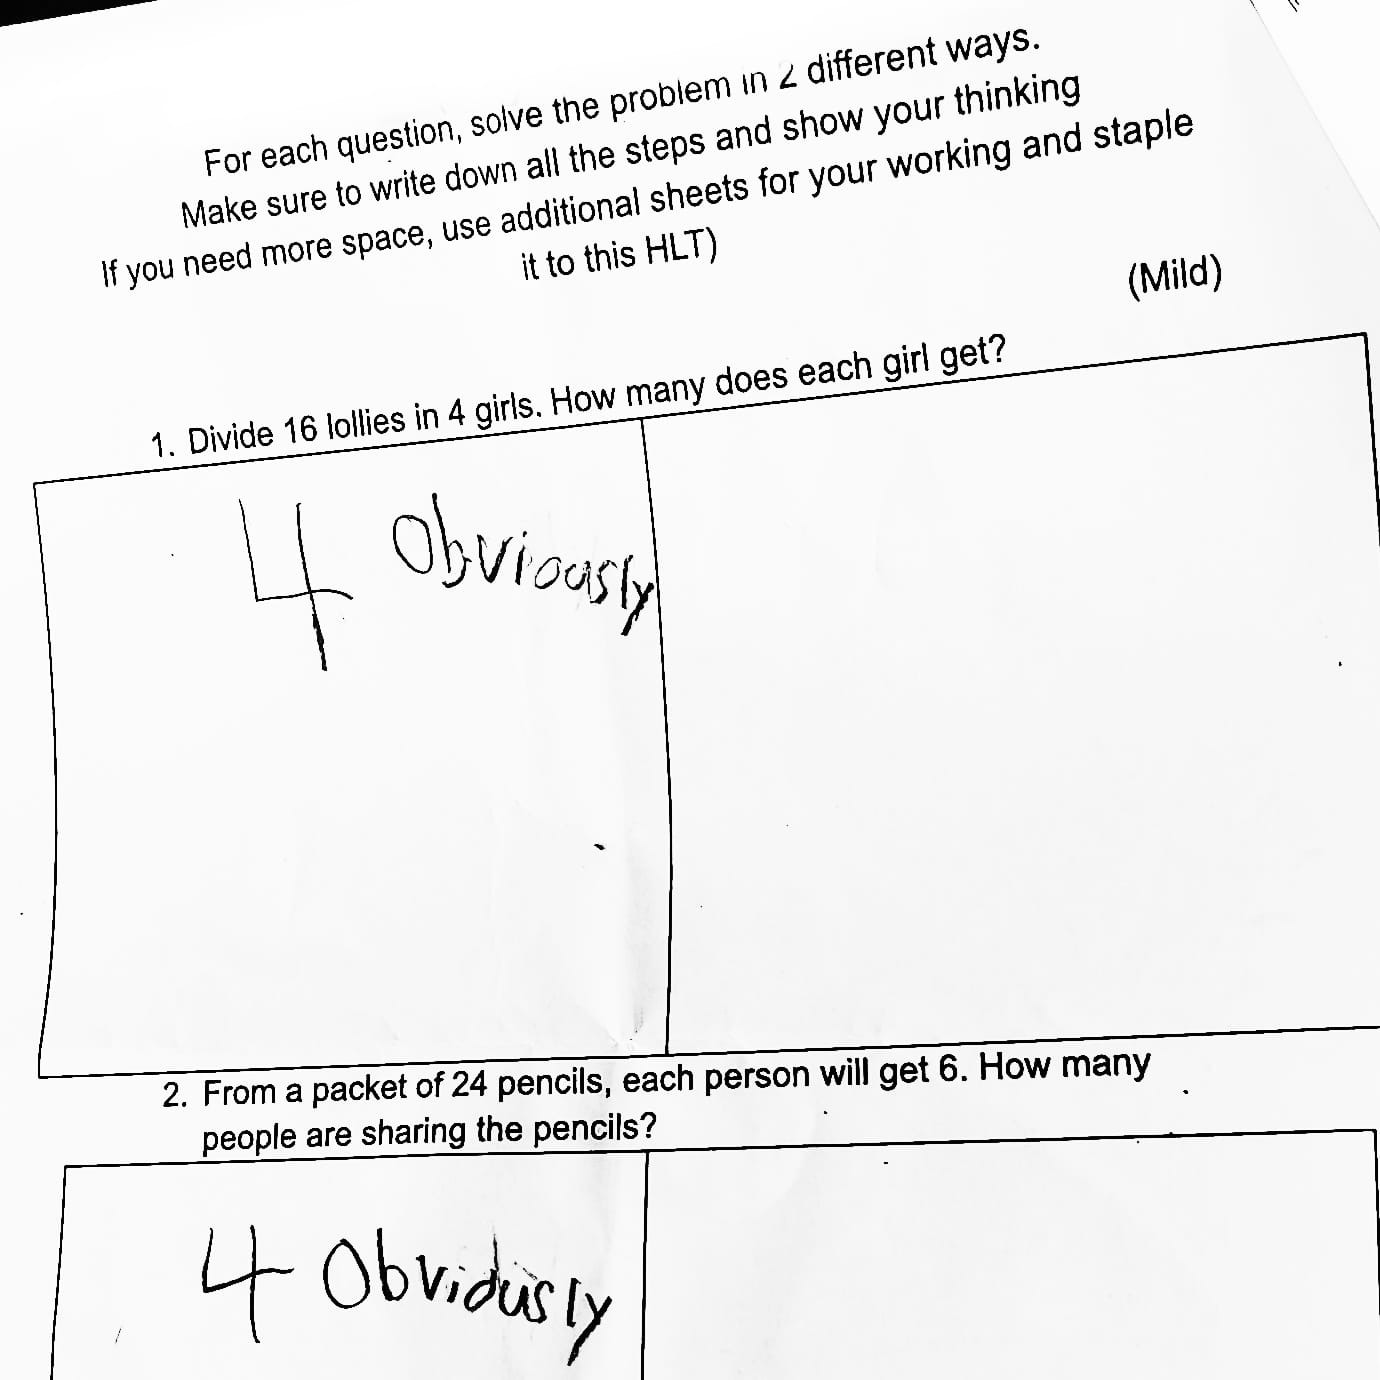 For each question, solve the problem in 2 different ways.
Make sure to write down all the steps and show your thinking
If you need more space, use additional sheets for your working and staple
it to this HLT)
(Mild)
1. Divide 16 lollies in 4 girls. How many does each girl get?
4 Obviously
2. From a packet of 24 pencils, each person will get 6. How many
people are sharing the pencils?
4 Obviously